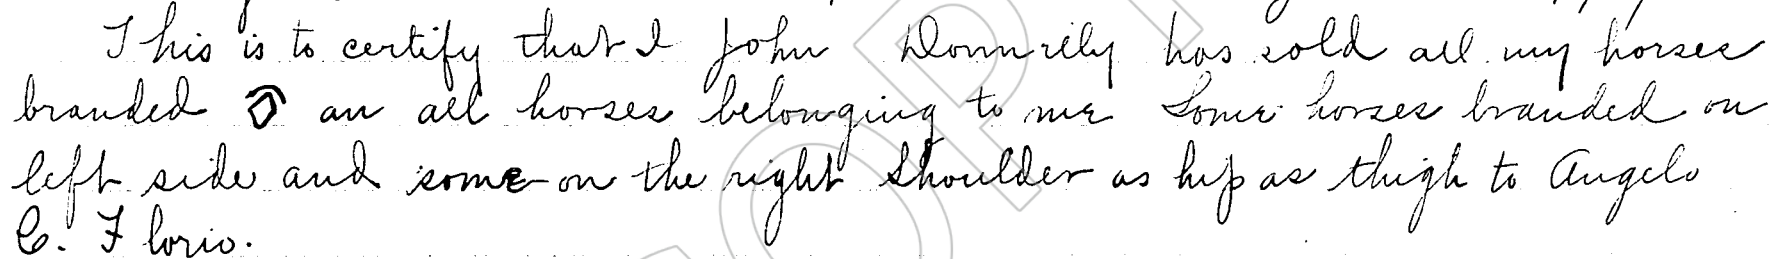 This is to certify that I John Donnrily has sold all my horses
branded an all horses belonging to me Some horses branded on
left side and some on the right shoulder as hip as thigh to Angelo
C. Florio.
COPY